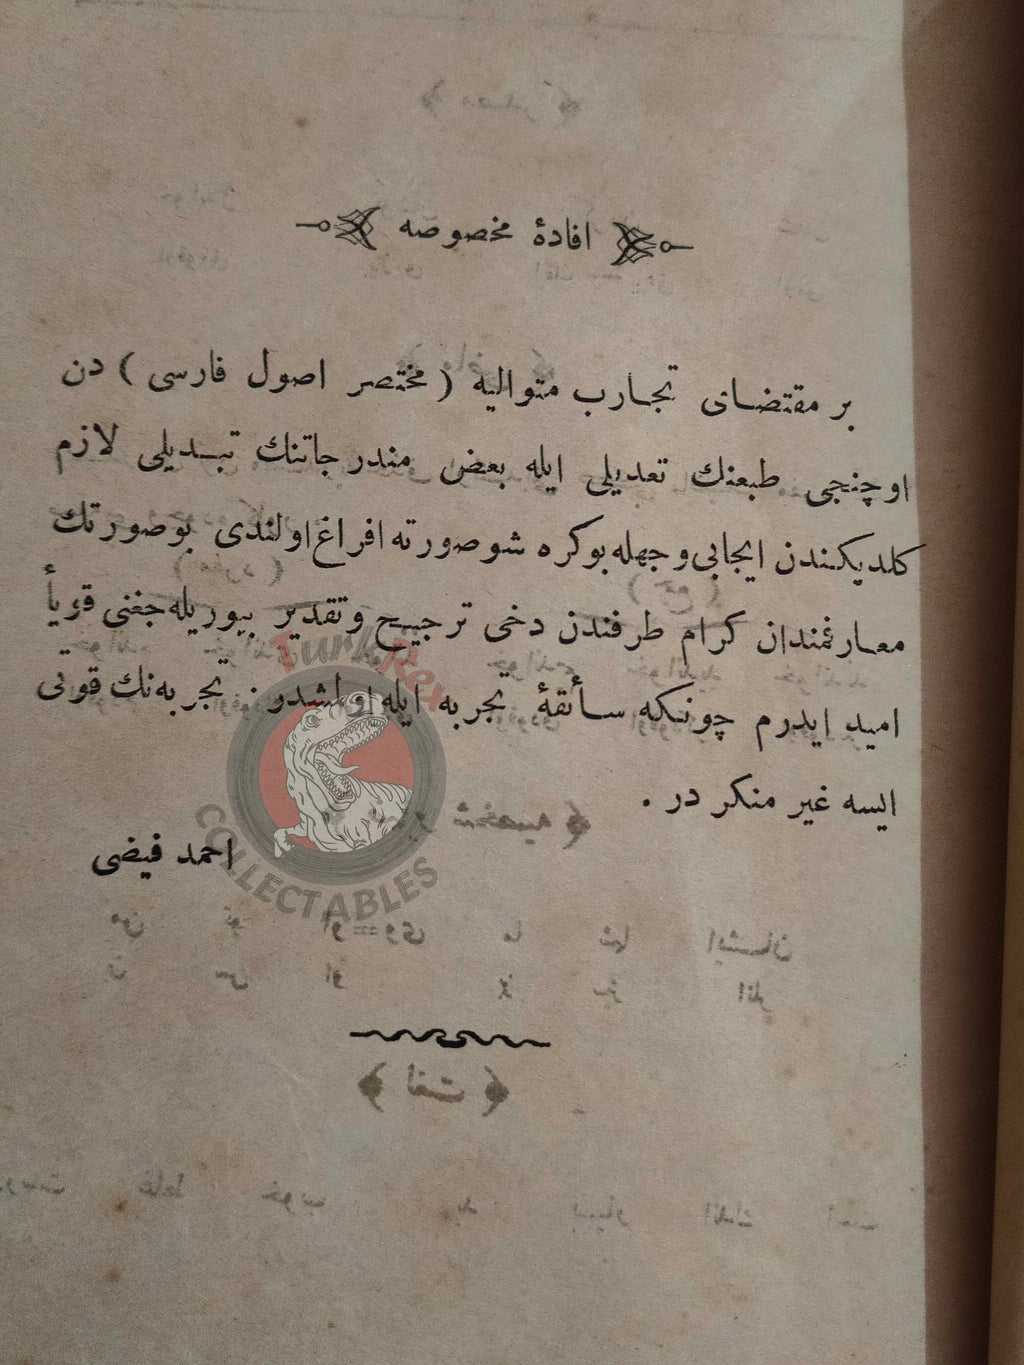 افادهٔ مخصوصه
بر مقتضـای تجـارب متوالیه ( مختصر اصول فارسی ) دن
اوچنجی طبعنك تعدیلی ایله بعض مندرجاتنك تبـدیلی لازم
كلدیكـندن ایجابی وجهله بوكره شوصورته افراغ اولندی بوصورتك
معـارفمندان كرام طرفندن دخی ترجیـح وتقدیر بیوریله جغنی قویأ
امید ایدرم چونكه سـأئقۀ تجربه ایله اولشدر تجربه نك قوتی
ایسه غیر منكر در .
احمد فیضی
Turk Rex
COLLECTABLES